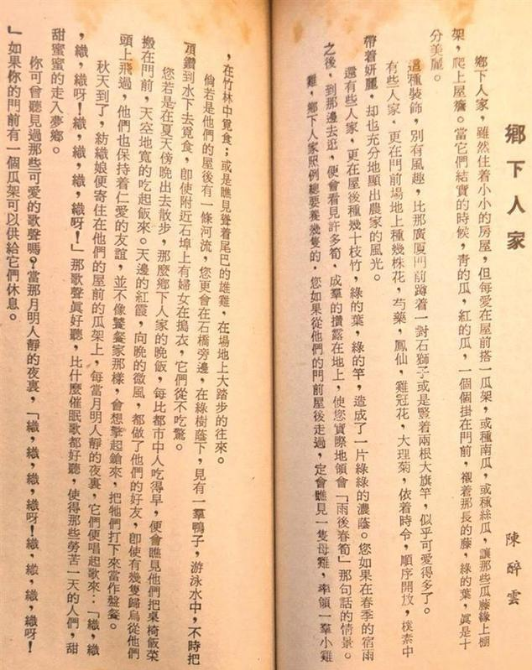 鄉下人家
陳醉雲
鄉下人家，雖然住着小小的房屋，但每愛在屋前搭一瓜架，或種南瓜，或種絲瓜，讓那些瓜藤緣上棚
架，爬上屋簷。當它們結實的時候，青的瓜，紅的瓜，一個個掛在門前，襯着那長的藤，綠的葉，眞是十
分美麗。
這種裝飾，別有風趣，比那廣厦門前蹲着一對石獅子或是豎着兩根大旗竿，似乎可愛得多了。
有些人家，更在門前場地上種幾株花，芍藥，鳳仙，雞冠花，大理菊，依着時令，順序開放，樸素中
帶着妍麗，却也充分地顯出農家的風光。
還有些人家，更在屋後種幾十枝竹，綠的葉，綠的竿，造成了一片綠綠的濃蔭。您如果在春季的宿雨
之後，到那邊去逛，便會看見許多筍，成羣的攢露在地上，使您實際地領會「雨後春筍」那句話的情景
雞，鄉下人家照例總要養幾隻的，您如果從他們的門前屋後走過，定會瞧見一隻母雞，率領一羣小雞
，在竹林中覓食；或是瞧見聳着尾巴的雄雞，在場地上大踏步的往來。
倘若是他們的屋後有一條河流，您更會在石橋旁邊，在綠樹蔭下，見有一羣鴨子，游泳水中，不時把
頂鑽到水下去覓食，卽使附近石埠上有婦女在搗衣，它們從不吃驚。
您若是在夏天傍晚出去散步，那麼鄉下人家的晚飯，每比都市中人吃得早，便會瞧見他們把桌椅飯菜
搬在門前，天空地寬的吃起飯來。天邊的紅霞，向晚的微風，都做了他們的好友，卽使有幾隻歸鳥從他們
頭上飛過，他們也保持着仁愛的友誼，並不像饕餮家那樣，會想擎起鎗來，把牠們打下來當作盤餐。
秋天到了，紡織娘便寄住在他們的屋前的瓜架上，每當月明人靜的夜裏，它們便唱起歌來：「織，織
，織，織呀！織，織，織，織呀！」那歌聲眞好聽，比什麼催眠歌都好聽，使得那些勞苦一天的人們，甜
甜蜜蜜的走入夢鄉。
你可曾聽見過那些可愛的歌聲嗎？當那月明人靜的夜裏，「織，織，織，織呀！織，織，織，織呀！
」如果你的門前有一個瓜架可以供給它們休息。